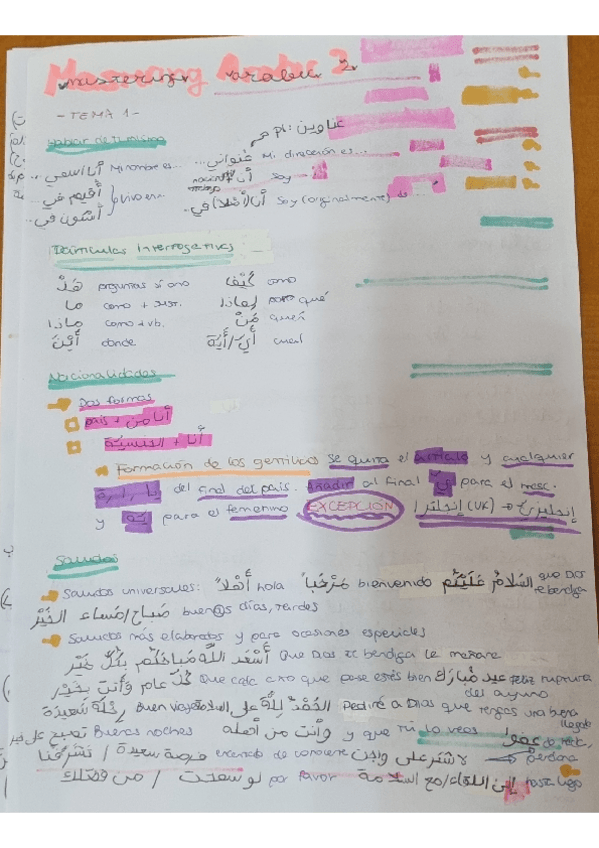 Mastering Arabic 2
- TEMA 1 -
Hablar de ti mismo
عناوين :pl
أنا اسمي ... Mi nombre es... عنواني ... Mi dirección es...
أقيم في ... vivo en... أنا ... Soy
أسكن في ... أنا (أصلا) في ... Soy (originalmente) de ...
Partículas interrogativas
هَلْ preguntas sí o no كَيْفَ como
ما como + sust. لِماذا por qué
ماذا como + vb. مَنْ quién
أَيْنَ donde أيّ/أيّة cual
Nacionalidades
Dos formas
país + أنا من
أنا + الجنسيّة
Formación de los gentilicios se quita el artículo y cualquier
ا, ة del final del país. Añadir al final يّ para el masc.
y يّة para el femenino EXCEPCIÓN إنجلترا (UK) → إنجليزيّ
Saludos
Saludos universales: أَهْلاً hola مَرْحَباً bienvenido السَّلامُ عَلَيْكُم que Dios te bendiga
صَباح/مَساء الخَيْر buenos días, tardes
Saludos más elaborados y para ocasiones especiales
أَسْعَدَ اللّه صَباحَكُم بِكُلِّ خَيْر Que Dios te bendiga la mañana
كُلّ عام وَأَنْتَ بِخَيْر Que cada año que pase estés bien عيد مُبارَك feliz ruptura del ayuno
رِحْلَة سَعيدَة Buen viaje الحَمْدُ لِلَّه على السلامة Pediré a Dios que tengas una buena llegada
تصبح على خير Buenas noches وأنت من أهله y que tú lo veas
فرصة سعيدة / تشرّفنا encantado de conocerte عفوا de nada, perdona
لو سمحت / من فضلك por favor إلى اللقاء/مع السلامة hasta luego